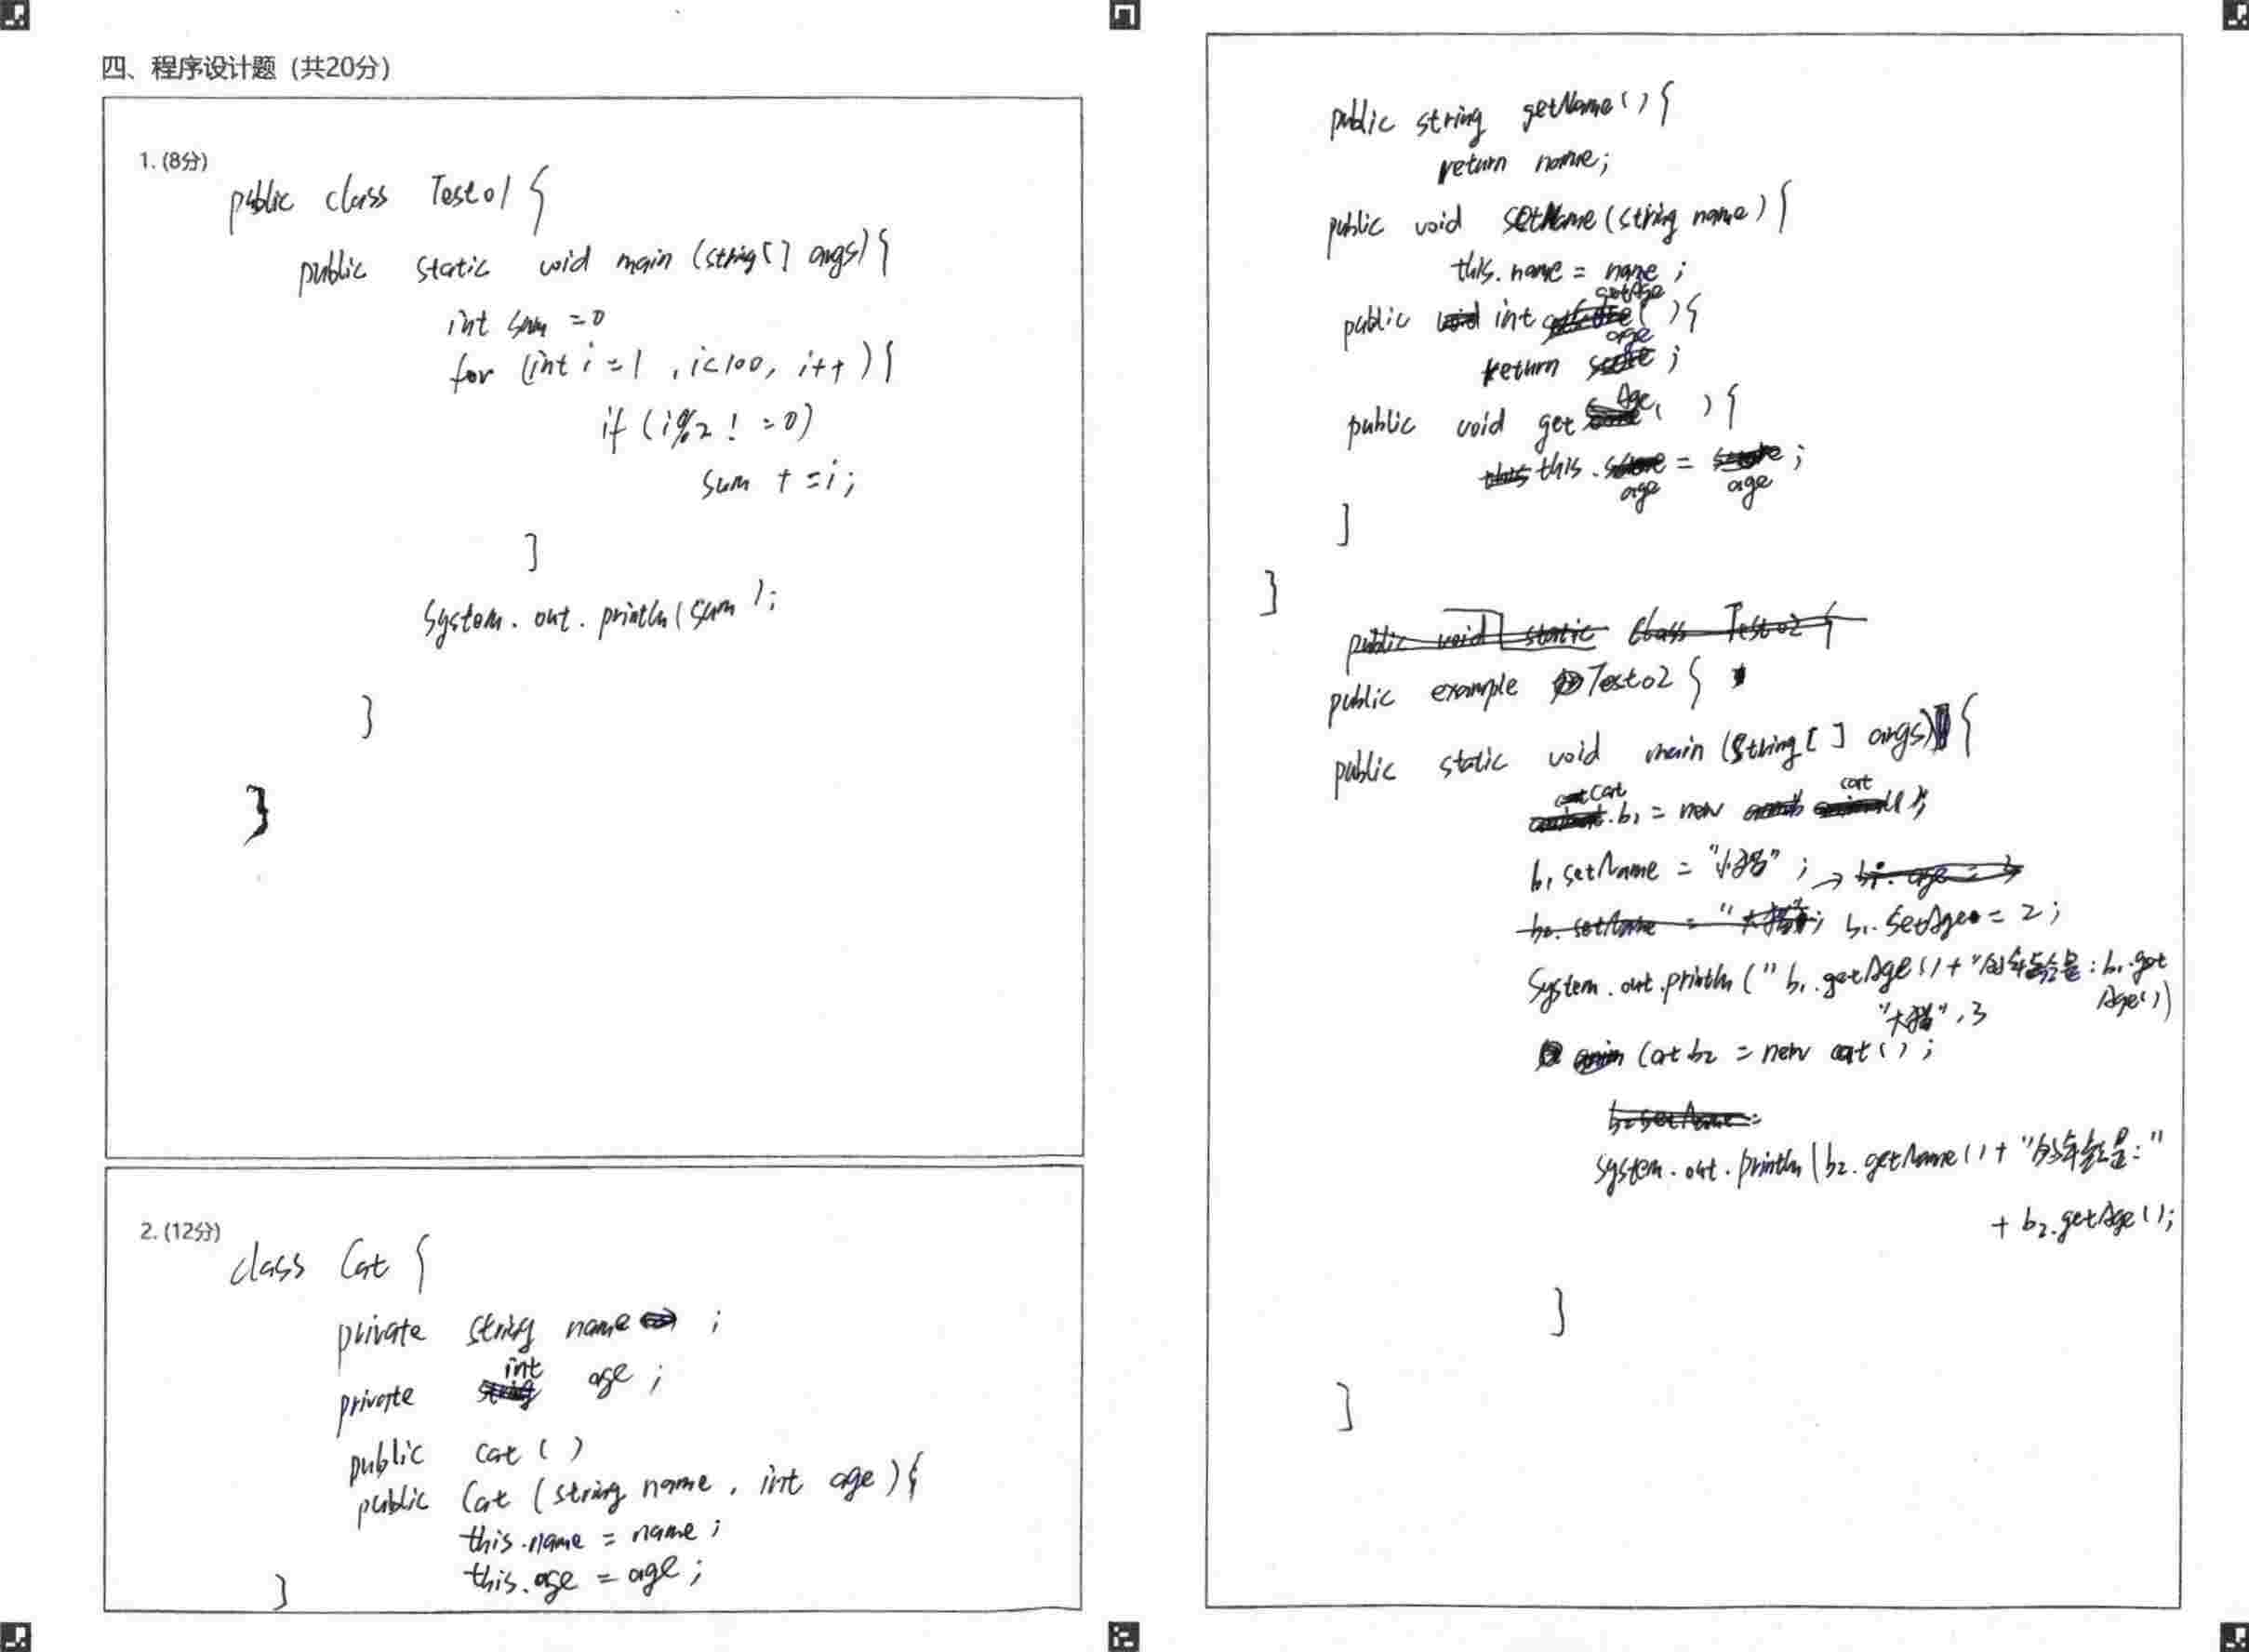 四、程序设计题（共20分）
1. (8分)
public class Test01 {
public static void main (string[] args) {
int sum =0
for (int i =1 , i<100, i++ ) {
if (i%2 ! =0)
sum + =i;
}
System. out. println(sum );
}
}
2. (12分)
class Cat {
private string name ;
private int age ;
public cat ( )
public Cat ( string name , int age ) {
this.name = name ;
this.age = age ;
}
public string getName( ) {
return name;
public void setName (string name ) {
this. name = name ;
public int getAge ( ) {
return age ;
public void get Age ( ) {
this . age = age ;
}
}
public example Test02 {
public static void main (String [ ] args) {
Cat . b1 = new cat ( );
b1 setName = "小猫" ;
b1. SetAge = 2 ;
System. out .println (" b1 .getAge ( ) + "的年龄是 : b1.get
Age( ))
"大猫" , 3
Cat b2 = new cat ( ) ;
system. out . println (b2. getName ( ) + "的年龄是 : "
+ b2. getAge ( );
}
}